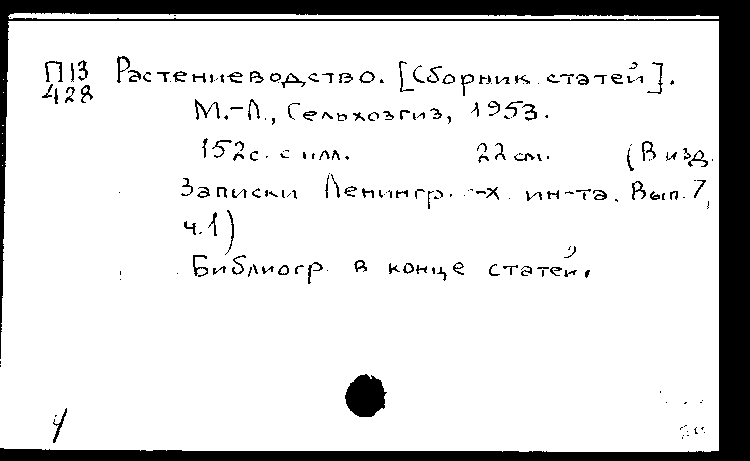 П13 Растениеводство. [Сборник статей].
428
М.-Л., Сельхозгиз, 1953.
152с. с илл. 22 см. (В изд.
Записки Ленингр. -х. ин-та. Вып. 7,
ч.1)
Библиогр. в конце статей.
4